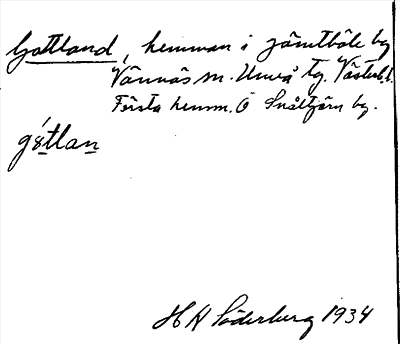 Gottland, hemman i Jämtböle by
Vännäs sn. Umeå tg. Västerb. l.
Första hemm. Ö Snåltjärn by.
gótlan
H A Söderberg 1934